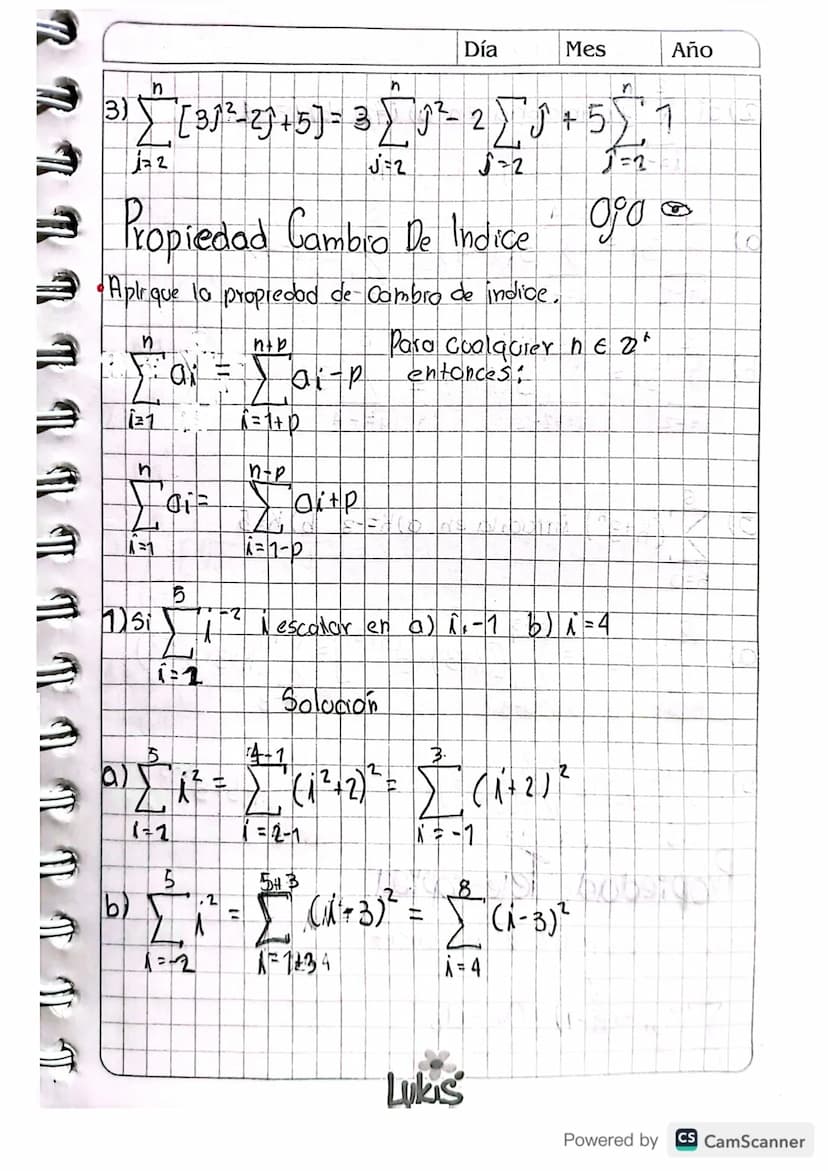 Día Mes Año
3) n ∑ j=2 [3j²-2j+5] = 3 n ∑ j=2 j² - 2 ∑ j=2 j + 5 n ∑ j=2 1
Propiedad Cambio De Indice Ojo
• Aplique la propiedad de cambio de indice.
n ∑ i=1 ai = n+p ∑ i=1+p ai-p Para cualquier n ∈ Z⁺
entonces:
n ∑ i=1 ai = n-p ∑ i=1-p ai+p
1) Si 5 ∑ i=1 i⁻² i escalar en a) i=-1 b) i=4
Solución
a) 5 ∑ i=1 i² = 4-1 ∑ i=2-1 (i²+2)² = 3 ∑ i=-1 (i+2)²
b) 5 ∑ i=-2 i² = 5+3 ∑ i=1+3 4 (i-3)² = 8 ∑ i=4 (i-3)²
Lukis
Powered by CS CamScanner